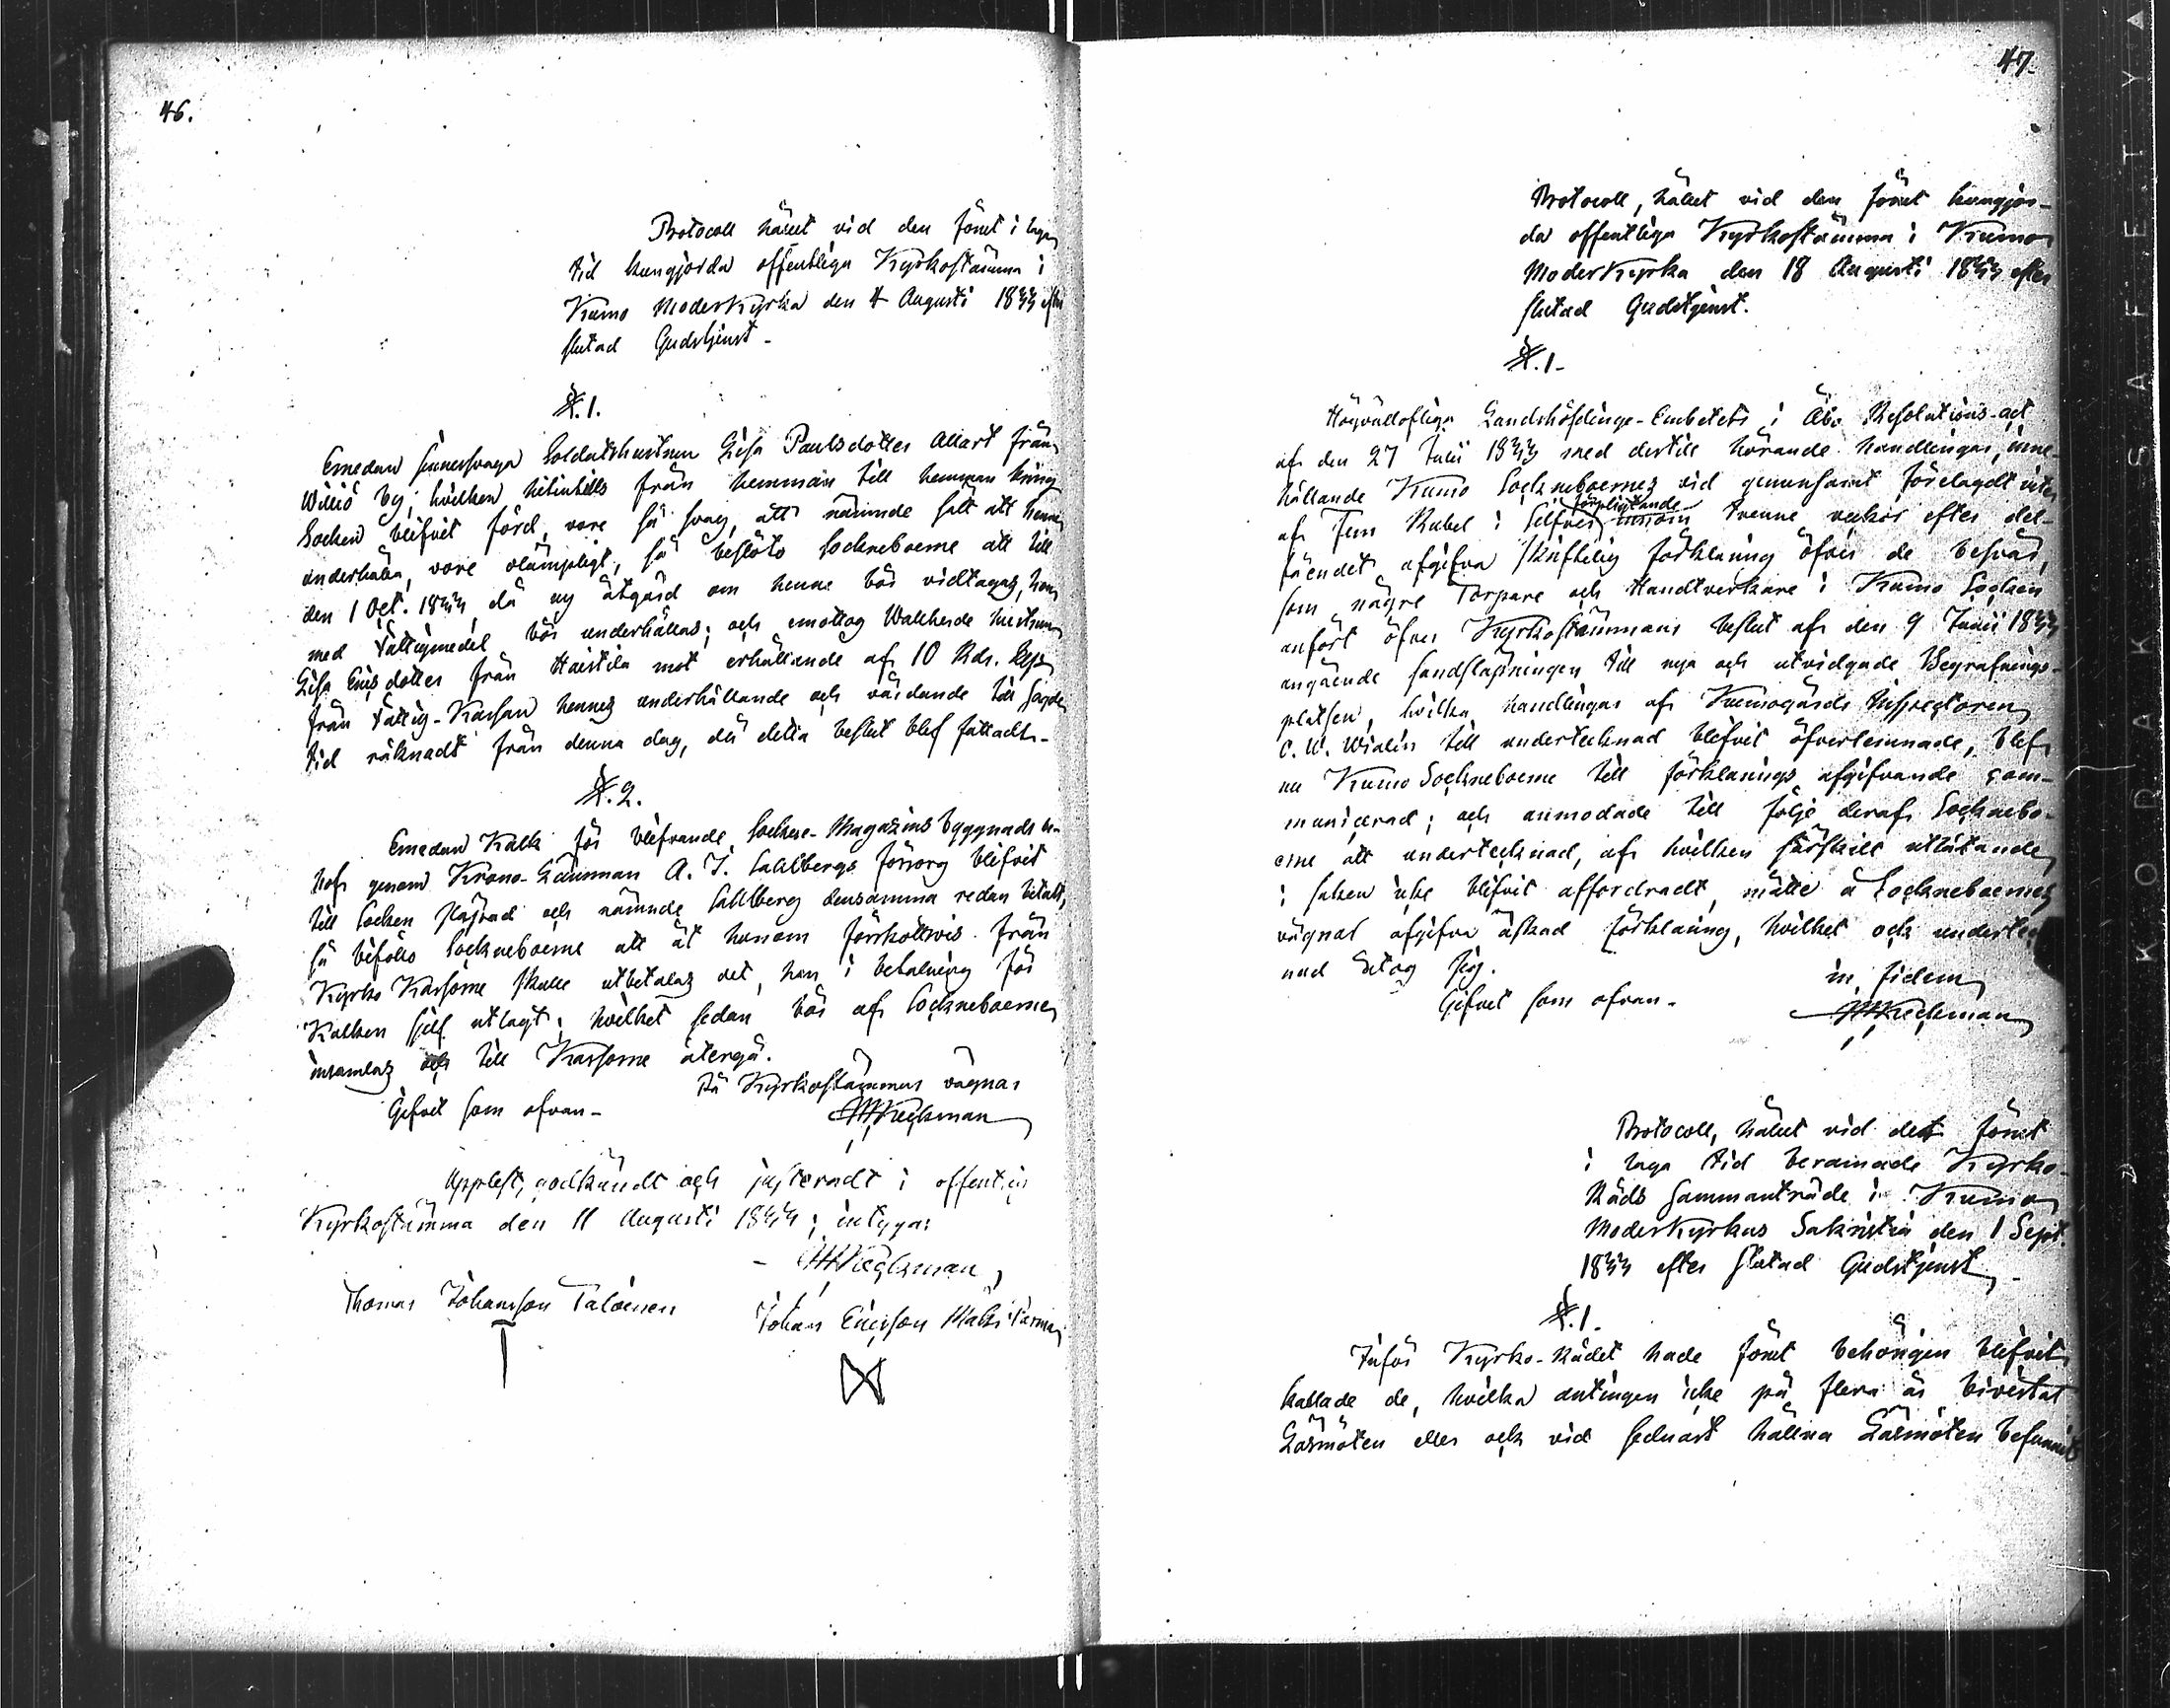 46.
Protocoll hållit vid den förut i laga
tid kungjorda offentliga Kyrkostämma i
Kumo ModerKyrka den 4 Augusti 1844 efter
slutad Gudstjenst.
§.1.
Emedan sinnessvaga Soldatshustrun Lisa Paulsdotter Allart från
Williö by, hvilken hitintills från hemman till hemman kring
Socken blifvit förd, vore så svag, att nämnde sätt att henne
underhålla, vore olämpligt, så beslöto Sockneboerne att till
den 1 Oct. 1844, då ny åtgärd om henne bör vidtagas, hon
med Fattigmedel bör underhållas; och emottog Wallherde hustrun
Lisa Ericsdotter från Haistila mot erhållande af 10 Rdr. Rgs
från Fattig-Kassan hennes underhållande och vårdande till sagde
tid räknadt från denna dag, då detta beslut blef fattadt.
§.2.
Emedan Kalk för blifvande Sockne-Magazins byggnads be-
hof genom Krono-Länsman A. J. Sahlbergs försorg blifvit
till Socken skaffad och nämnde Sahlberg densamma redan betalt,
så biföllo Sockneboerne att åt honom förskottsvis från
Kyrko Kassorne skulle utbetalas det, han i betalning för
Kalken sjelf utlagt; hvilket sedan bör af Sockneboerne
insamlas och till Kassorne återgå.
På Kyrkostämmans vägnar
Gifvet som ofvan.
Uppläst, godkändt och justeradt i offentlig
Kyrkostämma den 11 Augusti 1844; intygar
Thomas Johansson Taloinen
Johan Ericsson Matti
47.
Protocoll, hållit vid den förut kungjor-
da offentliga Kyrkostämma i Kumo
ModerKyrka den 18 Augusti 1844 efter
slutad Gudstjenst.
§.1.
Högvällofliga Landshöfdinge-Embetets i Åbo Resolutions-act
af den 27 Julii 1844 med dertill hörande handlingar, inne-
hållande Kumo Sockneboernes vid gemensamt förelagdt vite
af Fem Rubel i Silfver förpligtande inom trenne veckor efter del-
fåendet afgifva skriftelig förklaring öfver de besvär,
som någre Torpare och Handtverkare i Kumo Socken
anfört öfver Kyrkostämmans beslut af den 9 Junii 1844
angående sandsläpningen till nya och utvidgade Begrafnings-
platsen, hvilka handlingar af Kumogårds Inspectoren
C. W. Widlin till undertecknad blifvit öfverlemnade, blef
nu Kumo Sockneboerne till förklarings afgifvande com-
municerad; och anmodade till följe deraf Sockneboe-
erne att undertecknad, af hvilken särskilt utlåtande
i saken icke blifvit affordradt, måtte å Sockneboernes
vägnar afgifva äskad förklaring, hvilket och underteck
nad åtog sig.
in fidem
Gifvet som ofvan.
Protocoll, hållit vid det förut
i laga tid beramade Kyrko-
Råds sammanträde i Kumo
ModerKyrkas Sakristia den 1 Sept.
1844 efter slutad Gudstjenst.
§.1.
Inför Kyrko-Rådet hade förut behörigen blifvit
kallade de, hvilka antingen icke på flera år bivistat
Läsmöten eller och vid sednast hållna Läsmöten befunnits